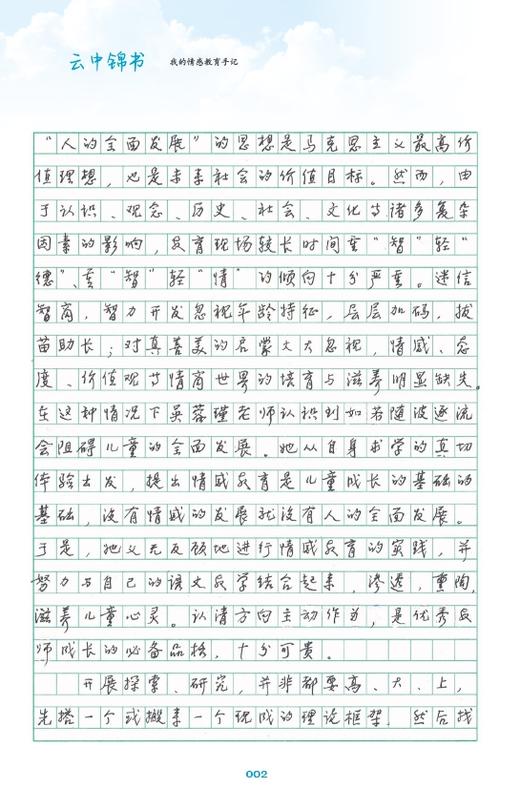 云中锦书 我的情感教育手记
“人的全面发展”的思想是马克思主义最高价
值理想，也是未来社会的价值目标。然而，由
于认识、观念、历史、社会、文化等诸多复杂
因素的影响，教育现场较长时间重“智”轻“
德”、重“智”轻“情”的倾向十分严重。迷信
智商，智力开发忽视年龄特征，层层加码，拔
苗助长；对真善美的启蒙大大忽视，情感、态
度、价值观等情商世界的培育与滋养明显缺失。
在这种情况下吴蓉瑾老师认识到如若随波逐流
会阻碍儿童的全面发展。她从自身求学的真切
体验出发，提出情感教育是儿童成长的基础的
基础，没有情感的发展就没有人的全面发展。
于是，她义无反顾地进行情感教育的实践，并
努力与自己的语文教学结合起来，渗透，熏陶，
滋养儿童心灵。认清方向主动作为，是优秀教
师成长的必备品格，十分可贵。
开展探索、研究，并非都要高、大、上，
先搭一个或搬来一个现成的理论框架，然后找
002